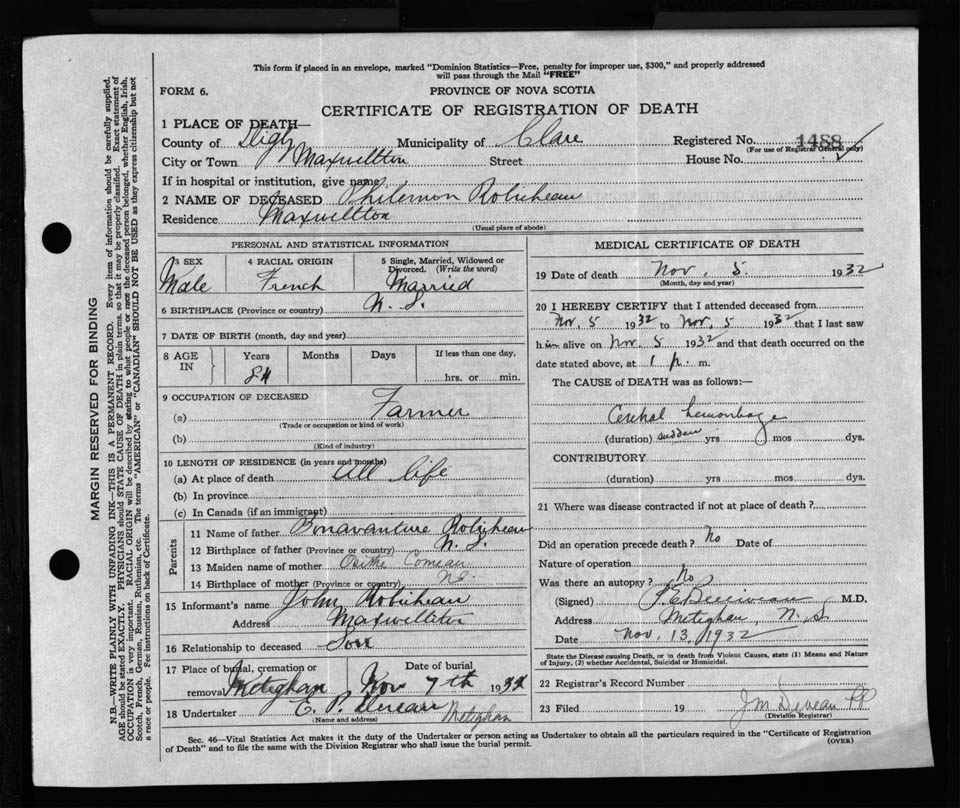 This form if placed in an envelope, marked "Dominion Statistics—Free, penalty for improper use, $300," and properly addressed
will pass through the Mail "FREE"
FORM 6.
PROVINCE OF NOVA SCOTIA
CERTIFICATE OF REGISTRATION OF DEATH
1 PLACE OF DEATH—
County of Digby Municipality of Clare Registered No. 1488
(For use of Registrar General only)
City or Town Maxwellton Street House No.
If in hospital or institution, give name
2 NAME OF DECEASED Philemon Robicheau
Residence Maxwellton
(Usual place of abode)
PERSONAL AND STATISTICAL INFORMATION
3 SEX 4 RACIAL ORIGIN 5 Single, Married, Widowed or
Divorced. (Write the word)
Male French Married
6 BIRTHPLACE (Province or country) N. S.
7 DATE OF BIRTH (month, day and year)
8 AGE IN Years Months Days If less than one day,
84 hrs. or min.
9 OCCUPATION OF DECEASED
(a) Farmer
(Trade or occupation or kind of work)
(b)
(Kind of industry)
10 LENGTH OF RESIDENCE (in years and months)
(a) At place of death All life
(b) In province
(c) In Canada (if an immigrant)
Parents
11 Name of father Bonavanture Robicheau
12 Birthplace of father (Province or country) N. S.
13 Maiden name of mother Comeau
14 Birthplace of mother (Province or country) N.S.
15 Informant's name John Robicheau
Address
16 Relationship to deceased Son
17 Place of burial, cremation or Date of burial
removal Meteghan Nov 7th 1932
18 Undertaker E. P.
(Name and address) Meteghan
MEDICAL CERTIFICATE OF DEATH
19 Date of death Nov. 5. 1932
(Month, day and year)
20 I HEREBY CERTIFY that I attended deceased from
Nov. 5 1932 to Nov. 5 1932 that I last saw
him alive on Nov. 5 1932 and that death occurred on the
date stated above, at 1 p. m.
The CAUSE of DEATH was as follows:—
hemorrhage
(duration) sudden yrs mos dys.
CONTRIBUTORY
(duration) yrs mos dys.
21 Where was disease contracted if not at place of death?
Did an operation precede death? No Date of
Nature of operation
Was there an autopsy? No
(Signed) M.D.
Address Meteghan, N. S.
Date Nov. 13, 1932
State the Disease causing Death, or in death from Violent Causes, state (1) Means and Nature
of Injury, (2) whether Accidental, Suicidal or Homicidal.
22 Registrar's Record Number
23 Filed 19 J M Deveau
(Division Registrar)
Sec. 46—Vital Statistics Act makes it the duty of the Undertaker or person acting as Undertaker to obtain all the particulars required in the "Certificate of Registration
of Death" and to file the same with the Division Registrar who shall issue the burial permit. (OVER)
MARGIN RESERVED FOR BINDING
N.B.—WRITE PLAINLY WITH UNFADING INK—THIS IS A PERMANENT RECORD. Every item of information should be carefully supplied.
AGE should be stated EXACTLY. PHYSICIANS should STATE CAUSE OF DEATH in plain terms, so that it may be properly classified. Exact statement of
OCCUPATION is very important. RACIAL ORIGIN will be described by stating to what people or race the deceased person belonged, whether English, Irish,
Scotch, French, German, Russian, Ruthenian, etc. The terms "AMERICAN" or "CANADIAN" SHOULD NOT BE USED as they express citizenship but not
a race or people. Fee instructions on back of Certificate.